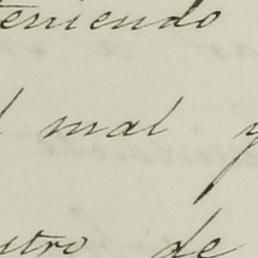 teniendo
l mal y
utro de